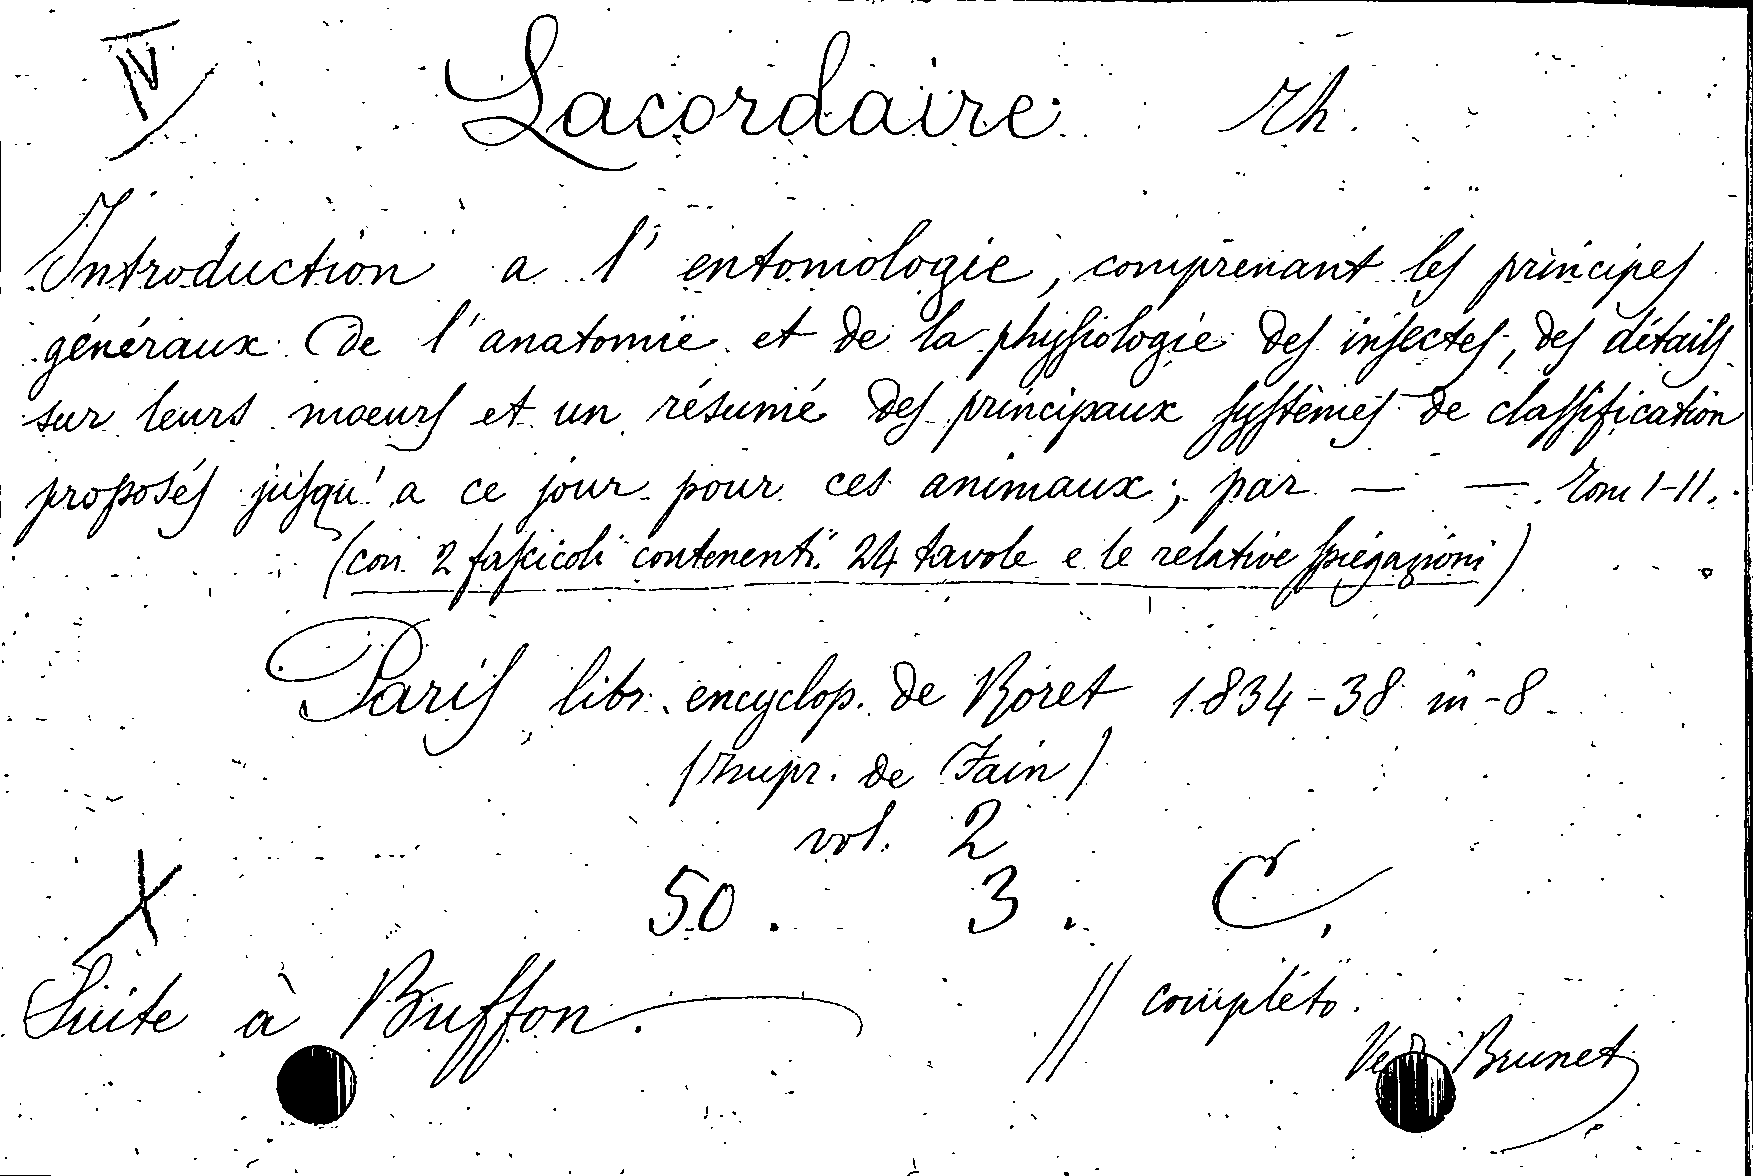 IV Lacordaire Th.
Introduction a l' entomologie, comprenant les principes
généraux de l'anatomie et de la physiologie des insectes, des détails
sur leurs moeurs et un résumé des principaux systèmes de classification
proposés jusqu'a ce jour pour ces animaux; par — — . Tom I-II.
(con 2 fascicoli contenenti 24 tavole e le relative spiegazioni)
Paris libr. encyclop. de Roret 1834-38 in-8
(Impr. de Fain)
vol. 2
X 50. 3. C.
Suite à Buffon. // completo.
Brunet